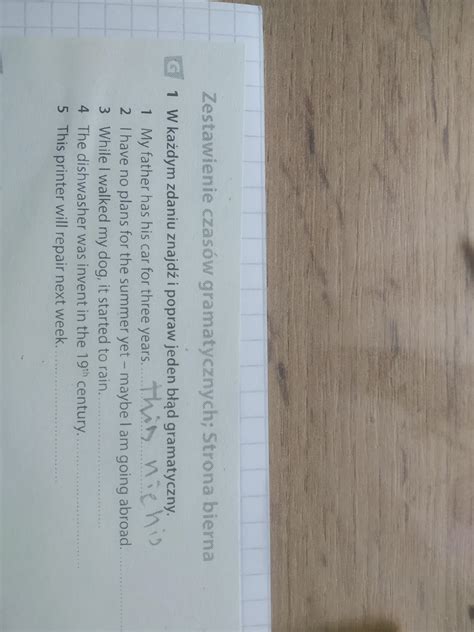 Zestawienie czasów gramatycznych; Strona bierna
G 1 W każdym zdaniu znajdź i popraw jeden błąd gramatyczny.
1 My father has his car for three years.
2 I have no plans for the summer yet – maybe I am going abroad.
3 While I walked my dog, it started to rain.
4 The dishwasher was invent in the 19th century.
5 This printer will repair next week.